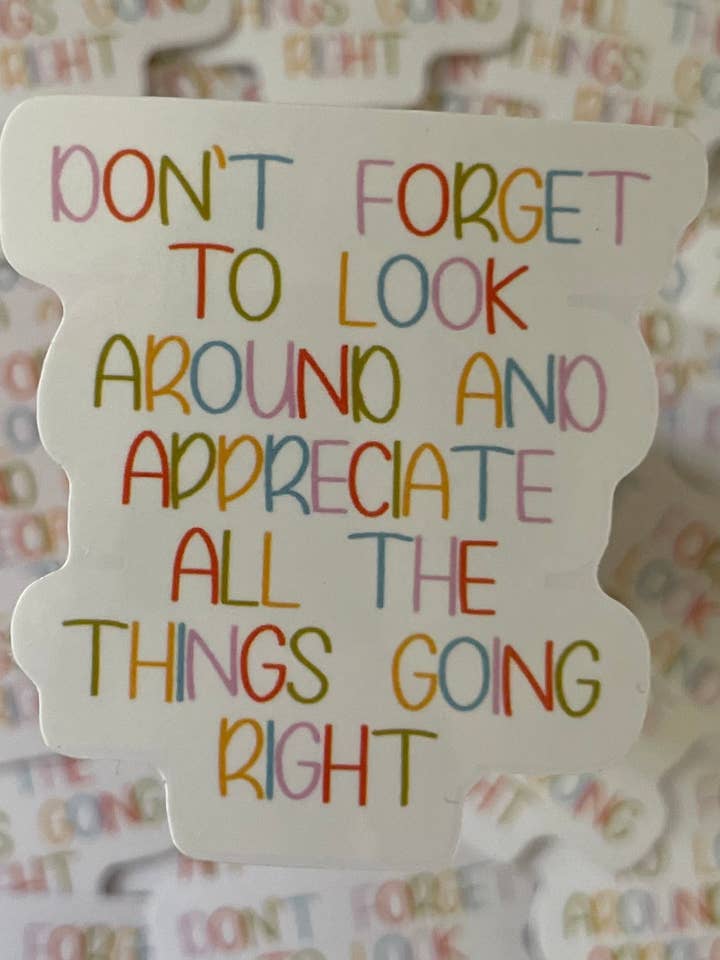 DON'T FORGET
TO LOOK
AROUND AND
APPRECIATE
ALL THE
THINGS GOING
RIGHT